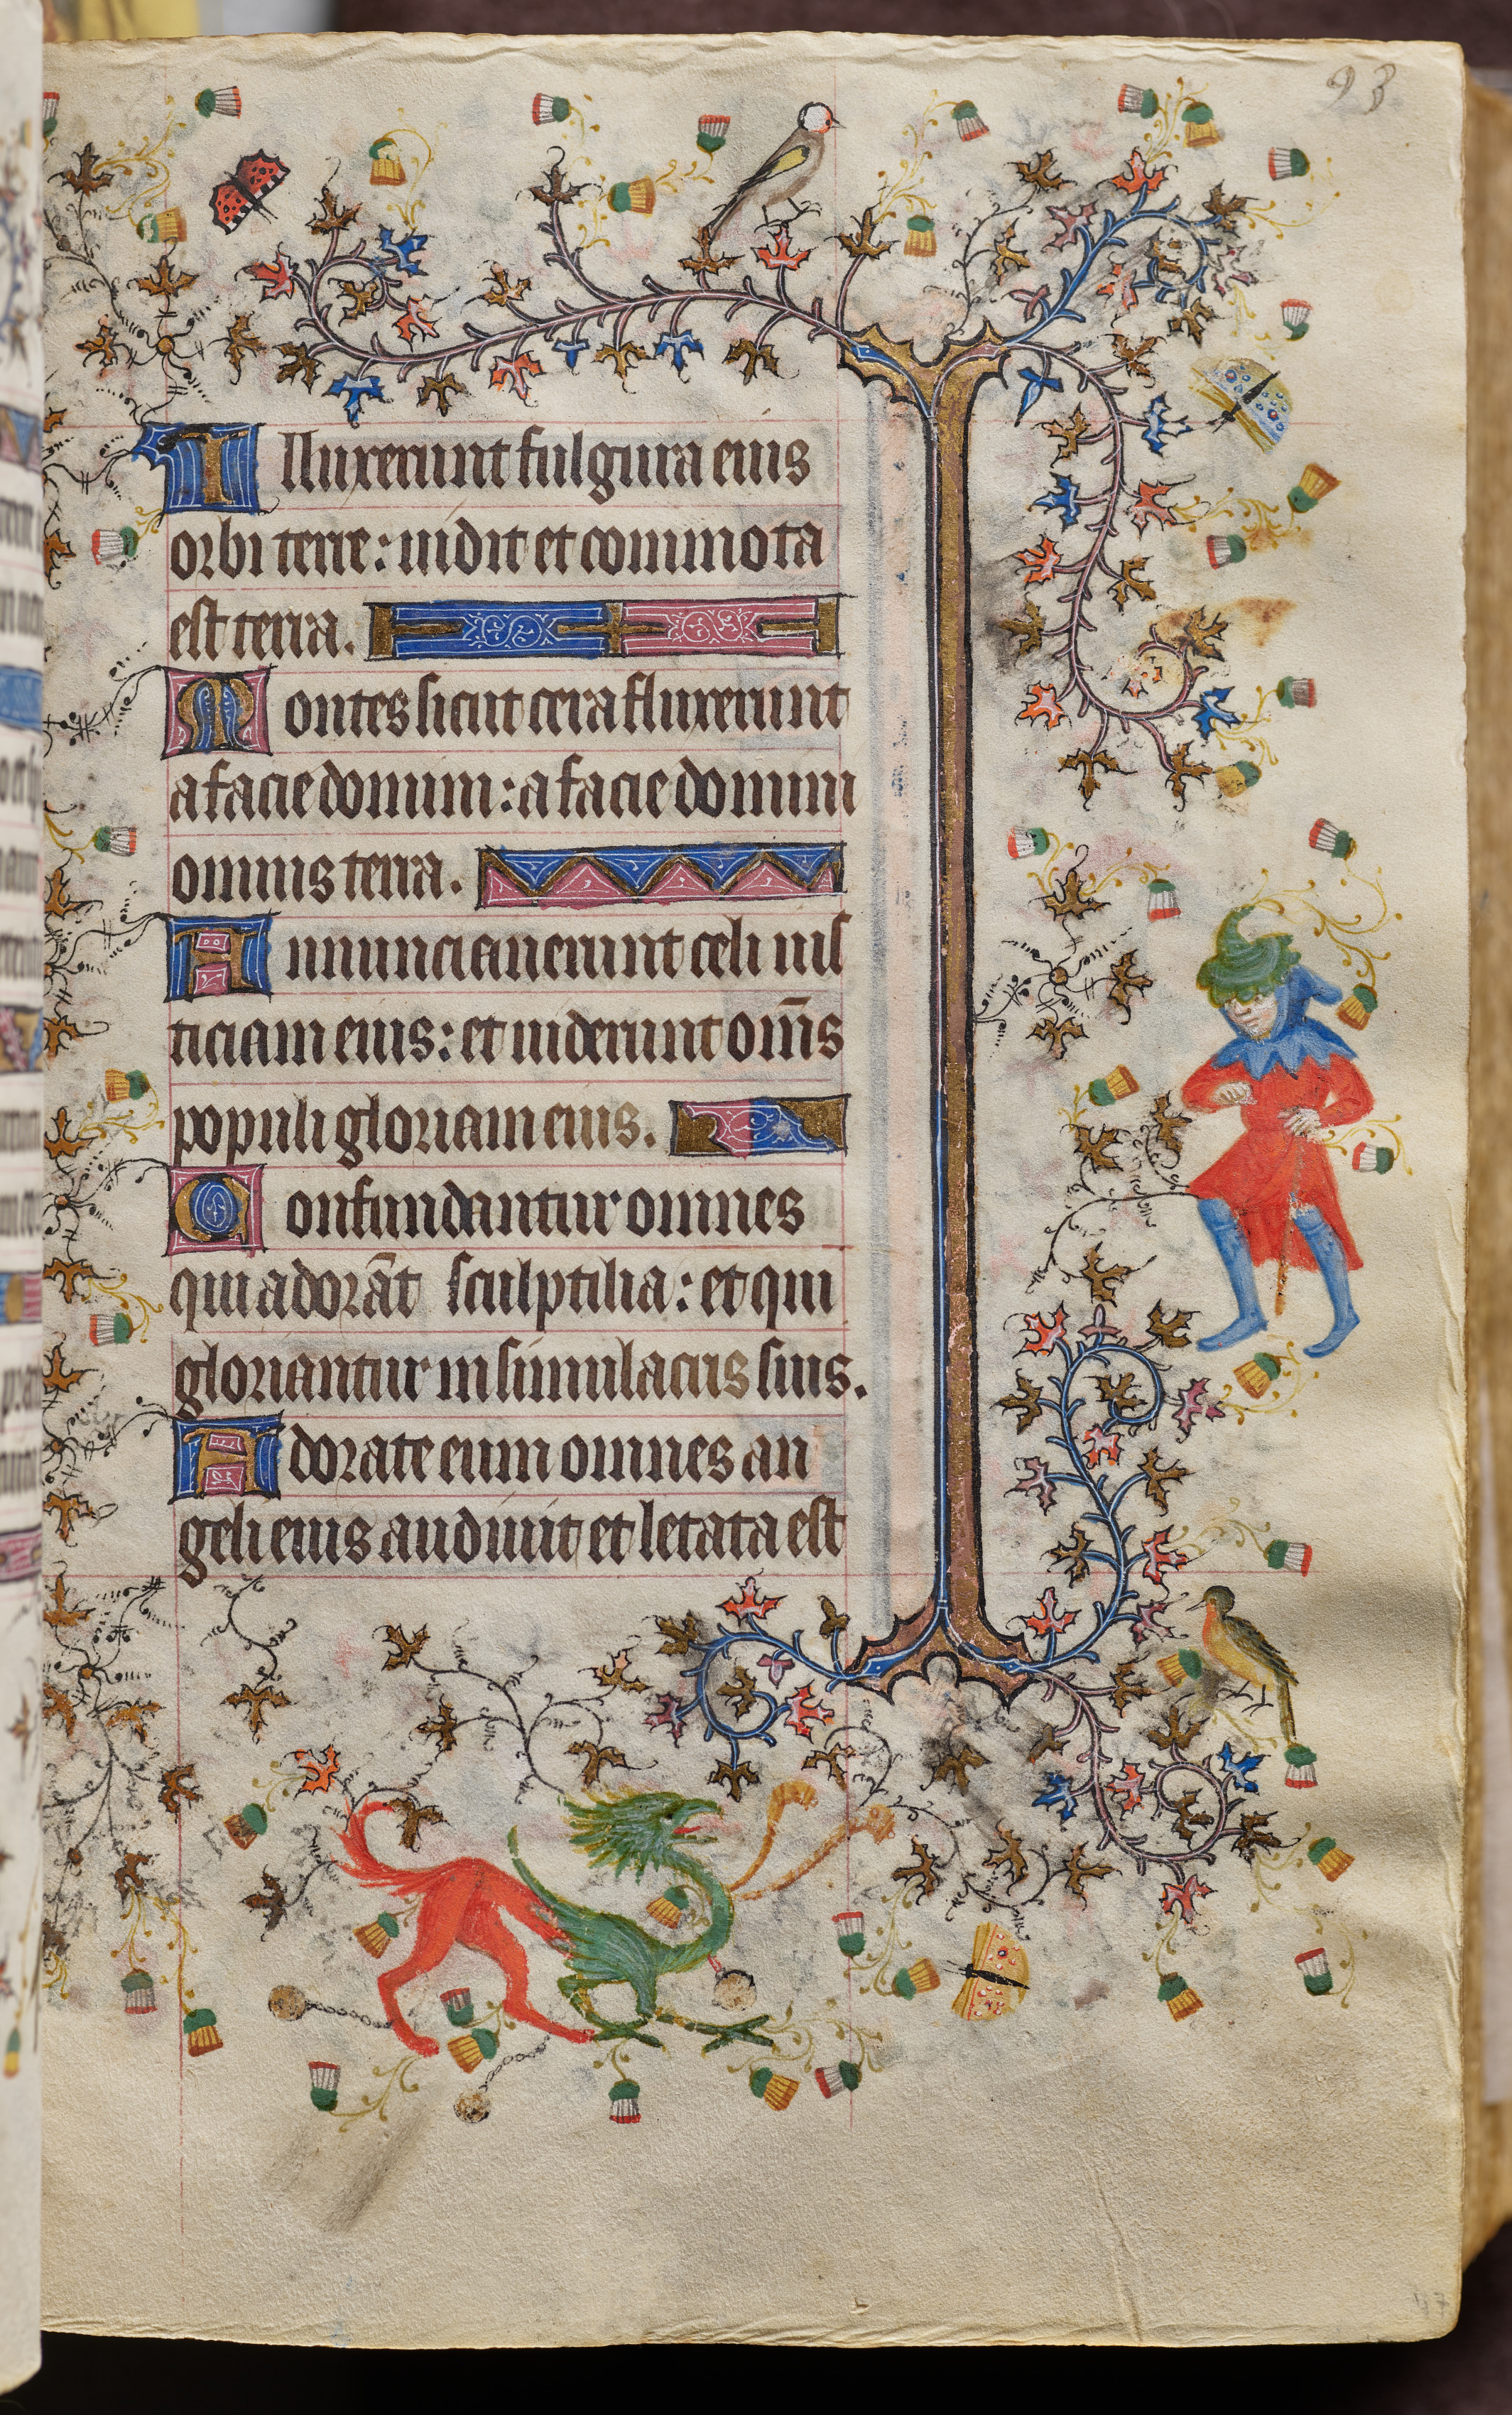 93
Illuxerunt fulgura eius
orbi terre: uidit et commota
est terra.
Montes sicut cera fluxerunt
a facie domini: a facie domini
omnis terra.
Annunciauerunt celi ius
ticiam eius: et uiderunt om̅s
populi gloriam eius.
Confundantur omnes
qui adorāt sculptilia: et qui
gloriantur in simulacris suis.
Adorate eum omnes an
geli eius audiuit et letata est